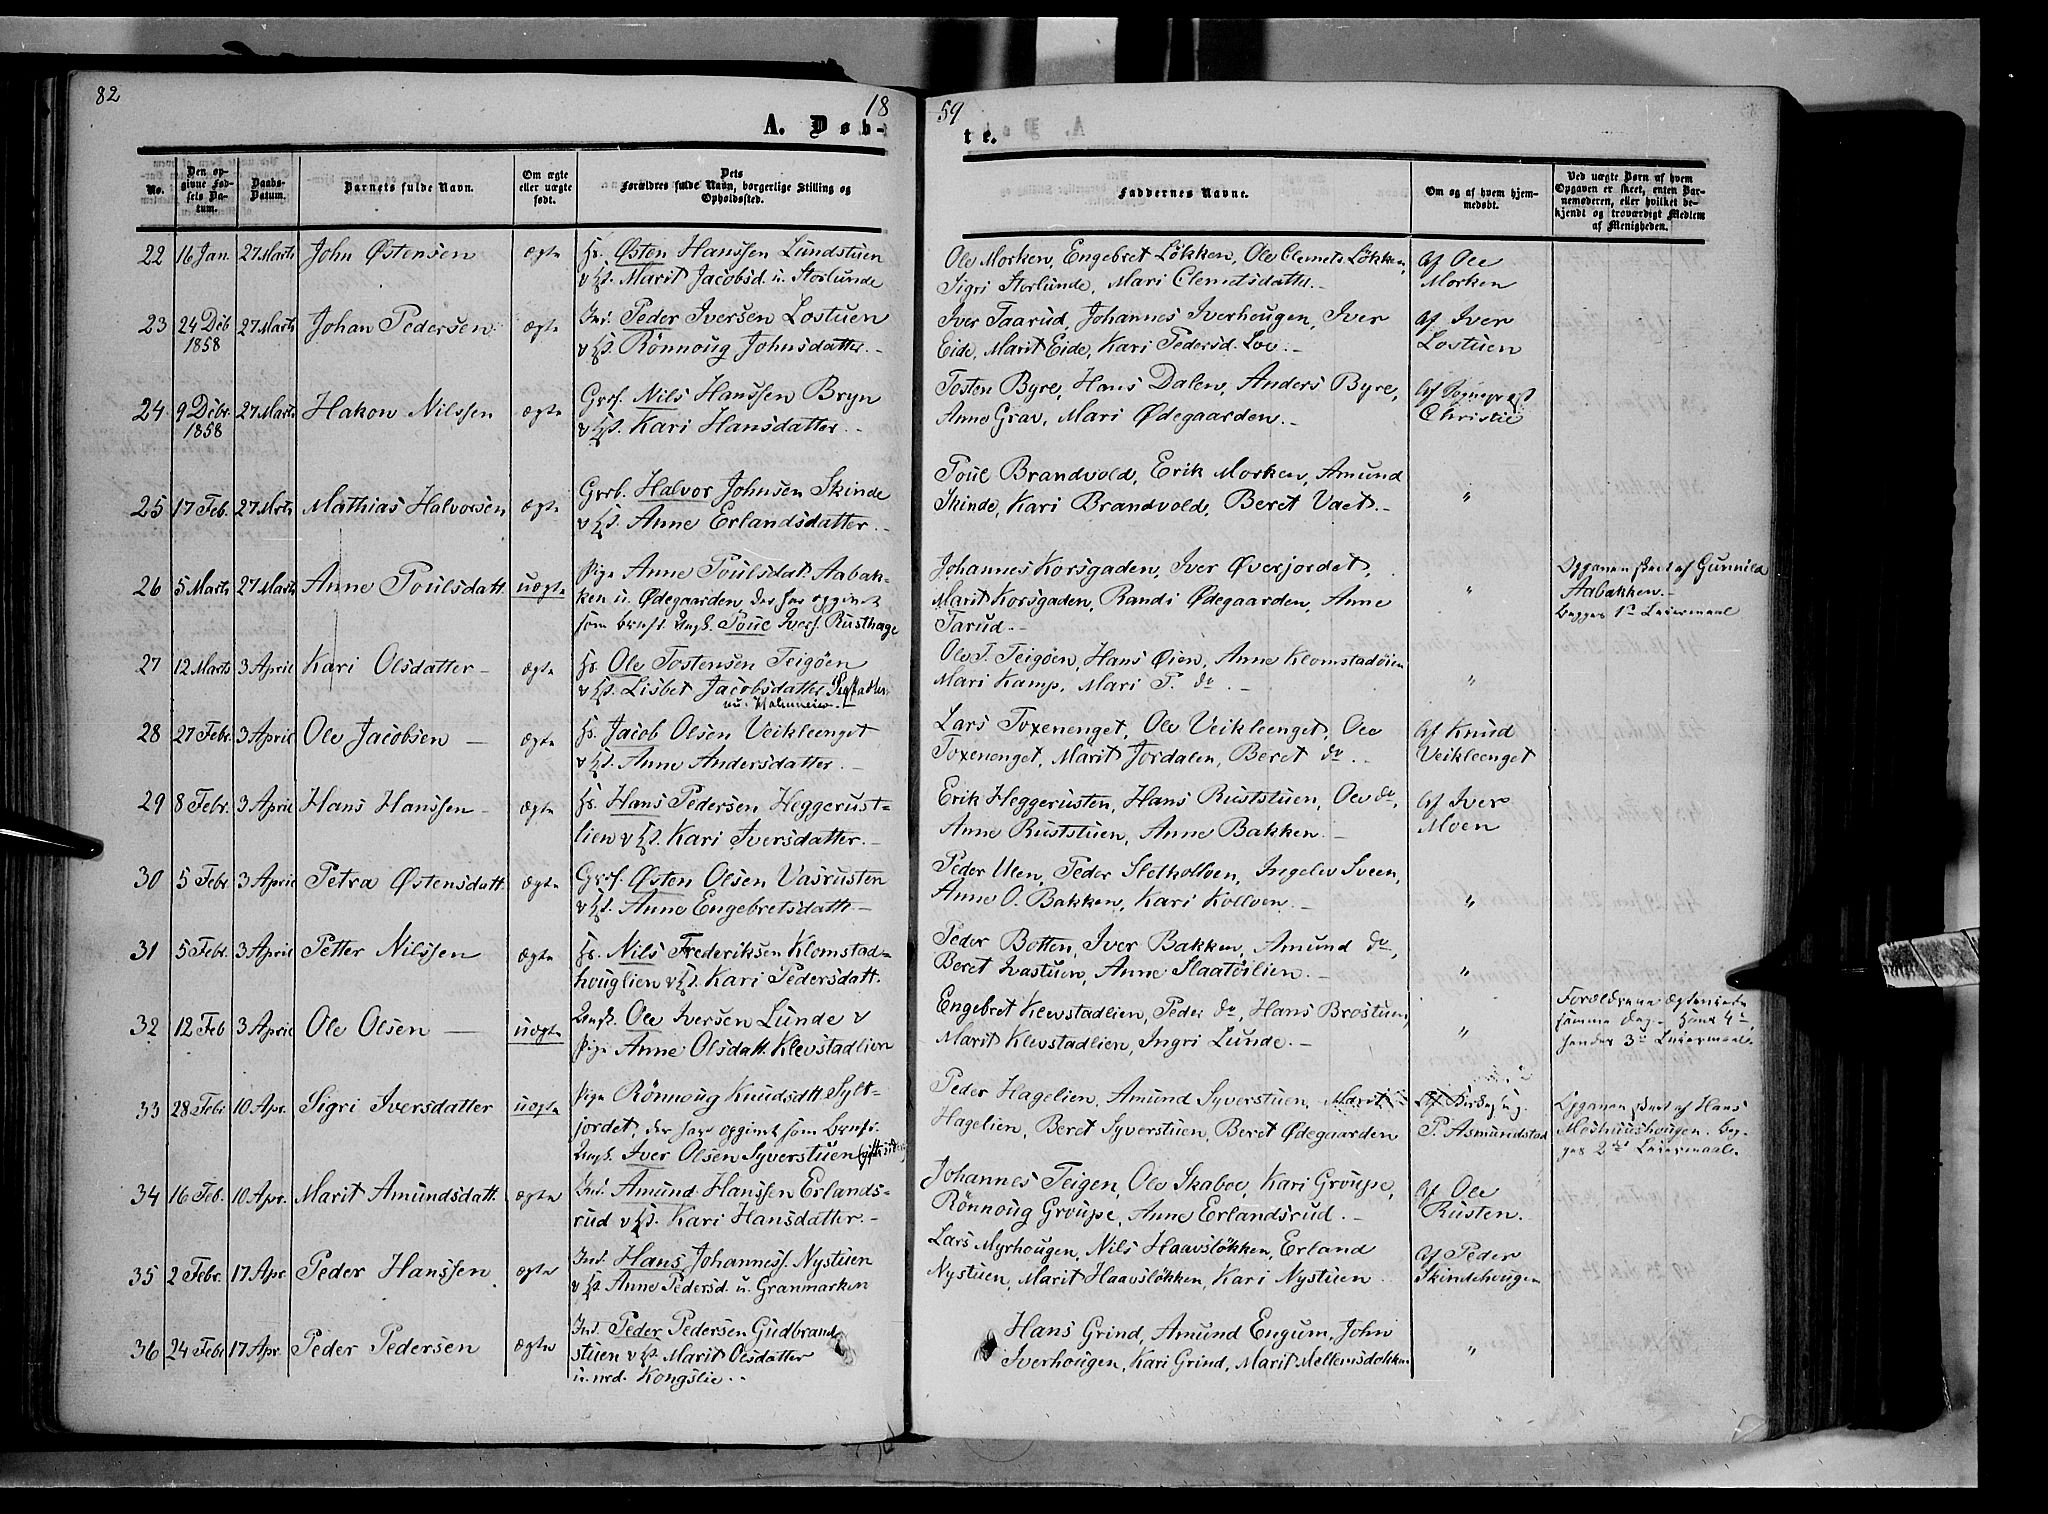 82
18
59
A. Døb-
te.
No.
Den op-
givne Fød-
sels Da-
tum.
Daabs-
Datum.
Barnets fulde Navn.
Om ægte
eller uægte
født.
Dets
Forældres fulde Navn, borgerlige Stilling og
Opholdssted.
Faddernes Navne.
Om og af hvem hjem-
medøbt.
Ved uægte Børn af hvem
Opgaven er skeet, enten Bar-
nemoderen, eller hvilket be-
kjendt og troværdigt Medlem
af Menigheden.
22 16 Jan. 27 Marts John Østensen ægte Hs. Østen Hanssen Lundstuen
v Hst. Marit Jacobsd. u. Storlunde
Ole Morken, Engebret Løkken, Ole Clemets Løkken,
Sigri Storlunde, Mari Clemetsdatter.-
Af Ole
Morken
23 24 Dcb 1858 27 Marts Johan Pedersen ægte Ind. Peder Iversen Lostuen
v Hst. Rönnoug Johnsdatter.-
Iver Taarud, Johannes Iverhougen, Iver
Eide, Marit Eide, Kari Pedersd. Loe.-
Af Iver
Lostuen
24 9 Dcbr. 1858 27 Marts Hakon Nilssen ægte Grbf. Nils Hanssen Bryn
v Hst. Kari Hansdatter.-
Tosten Byre, Hans Dalen, Anders Byre,
Anne Grav, Mari Ødegaarden.-
Af Sogneprest
Christie
25 17 Feb. 27 Mrts Mathias Halvorsen ægte Grbf. Halvor Johnsen Skinde
v Hst. Anne Erlandsdatter.-
Poul Brandvold, Erik Morken, Amund
Skinde, Kari Brandvold, Beret Vaet.-
"
26 5 Marts 27 Marts Anne Poulsdatt. uægte Pige Anne Poulsdat. Aabak-
ken u. Ødegaarden, der har opgivet
som brnf. Ungk. Poul Ivers. Rusthage
Johannes Korsgaden, Iver Øverjordet,
Marit Korsgaden, Randi Ødegaarden, Anne
Tarud.-
"
Opgaven skeet af Gunnild
Aabakken.-
Begges 1ste Leiermaal
27 12 Marts 3 April Kari Olsdatter - ægte Hs. Ole Tostensen Teigöen
v Hst. Lisbet Jacobsdatter
Ole T. Teigöen, Hans Øien, Anne Klomstadöien
Mari Kamp, Mari T. do.-
"
28 27 Febr. 3 April Ole Jacobsen - ægte Hs. Jacob Olsen Veikleenget
v Hst. Anne Andersdatter.-
Lars Toxenenget, Ole Veikleenget, Ole
Toxenenget, Marit Jordalen, Beret do.
Af Knud
Veikleenget
29 8 Febr. 3 April Hans Hanssen - ægte Hs. Hans Pedersen Heggerust-
lien v Hst. Kari Iversdatter.-
Erik Heggerusten, Hans Ruststuen, Ole do,
Anne Ruststuen, Anne Bakken.-
Af Iver
Moen
30 5 Febr. 3 April Petra Østensdatt. ægte Grbf. Østen Olsen Vasrusten
v Hst. Anne Engebretsdatt.-
Peder Ulen, Peder Sletkolloen, Ingelev Sveen,
Anne O. Bakken, Kari Kolloen.-
"
31 5 Febr. 3 April Petter Nilssen ægte Hs. Nils Frederiksen Klomstad-
houglien v Hst. Kari Pedersdatt.
Peder Botten, Iver Bakken, Amund do,
Beret Ivastuen, Anne Slaatölien.-
"
32 12 Feb 3 April Ole Olsen - uægte Ungk. Ole Iversen Lunde v
Pige Anne Olsdatt. Klevstadlien
Engebret Klevstadlien, Peder do, Hans Brostuen,
Marit Klevstadlien, Ingri Lunde.-
"
Forældrene ægteviede
samme dag.- Hans 4de,
hendes 3de Leiermaal.
33 28 Febr 10 Apr. Sigri Iversdatter uægte Pige Rönnoug Knudsdtt. Sylt-
jordet, der har opgivet som Barnf.
Ungk. Iver Olsen Syverstuen
Peder Hagelien, Amund Syverstuen, Marit
Hagelien, Beret Syverstuen, Beret Ødegaarden
P. Asmundstad
Opgaven skeet af Hans
Meshuushougen. Beg-
ges 2det Leiermaal.
34 16 Feb. 10 Apr. Marit Amundsdatt. ægte Ind. Amund Hanssen Erlands-
rud v Hst. Kari Hansdatter.-
Johannes Teigen, Ole Skaboe, Kari Groupe,
Rönnoug Groupe, Anne Erlandsrud.-
Af Ole
Rusten.
35 2 Febr. 17 Apr Peder Hanssen ægte Ind. Hans Johanness. Nystuen
v Hst. Anne Pedersd. u. Granmarken
Lars Myrhougen, Nils Haavsløkken, Erland
Nystuen, Marit Haavsløkken, Kari Nystuen.
Af Peder
Skindehougen
36 24 Febr 17 Apr. Peder Pedersen ægte Ind. Peder Pedersen Gudbrand
stuen v Hst. Marit Olsdatter
u. ned. Kongslie.-
Hans Grind, Amund Engum, John
Iverhougen, Kari Grind, Marit Mellemsdokken
"